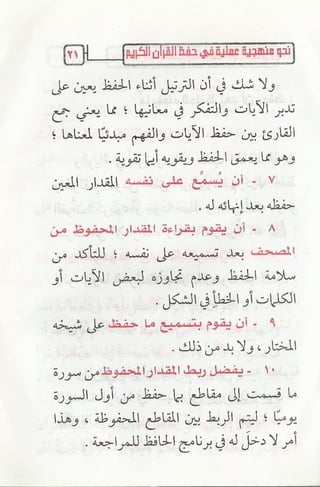 نحو منهجية عملية في حفظ القرآن الكريم
٢١
ولا شك في أن الترتيل أثناء الحفظ يعين على
تدبر الآيات والتفكر في معانيها ؛ مما يعني جمع
القارئ بين حفظ الآيات والفهم مبدئيًا لمعناها ؛
وهو مما يعمق الحفظ ويقويه أيما تقوية .
٧ - أن يُسمِّع على نفسه المقدار المعين
حفظه بعد إنهائه له .
٨ - أن يقوم بقراءة المقدار المحفوظ من
المصحف بعد تسميعه على نفسه ؛ للتأكد من
سلامة الحفظ وعدم تجاوزه لبعض الآيات أو
الكلمات أو الخطأ في الشكل .
٩ - أن يقوم بتسميع ما حفظ على شيخه
المختار ، ولا بد من ذلك .
١٠ - يفضل ربط المقدار المحفوظ من سورة
ما قسمت إلى مقاطع بما حفظ من أول السورة
يوميًا ؛ ليتم الربط بين المقاطع المحفوظة ، وهذا
أمر لا دخلَ له في برنامج الحافظ للمراجعة .